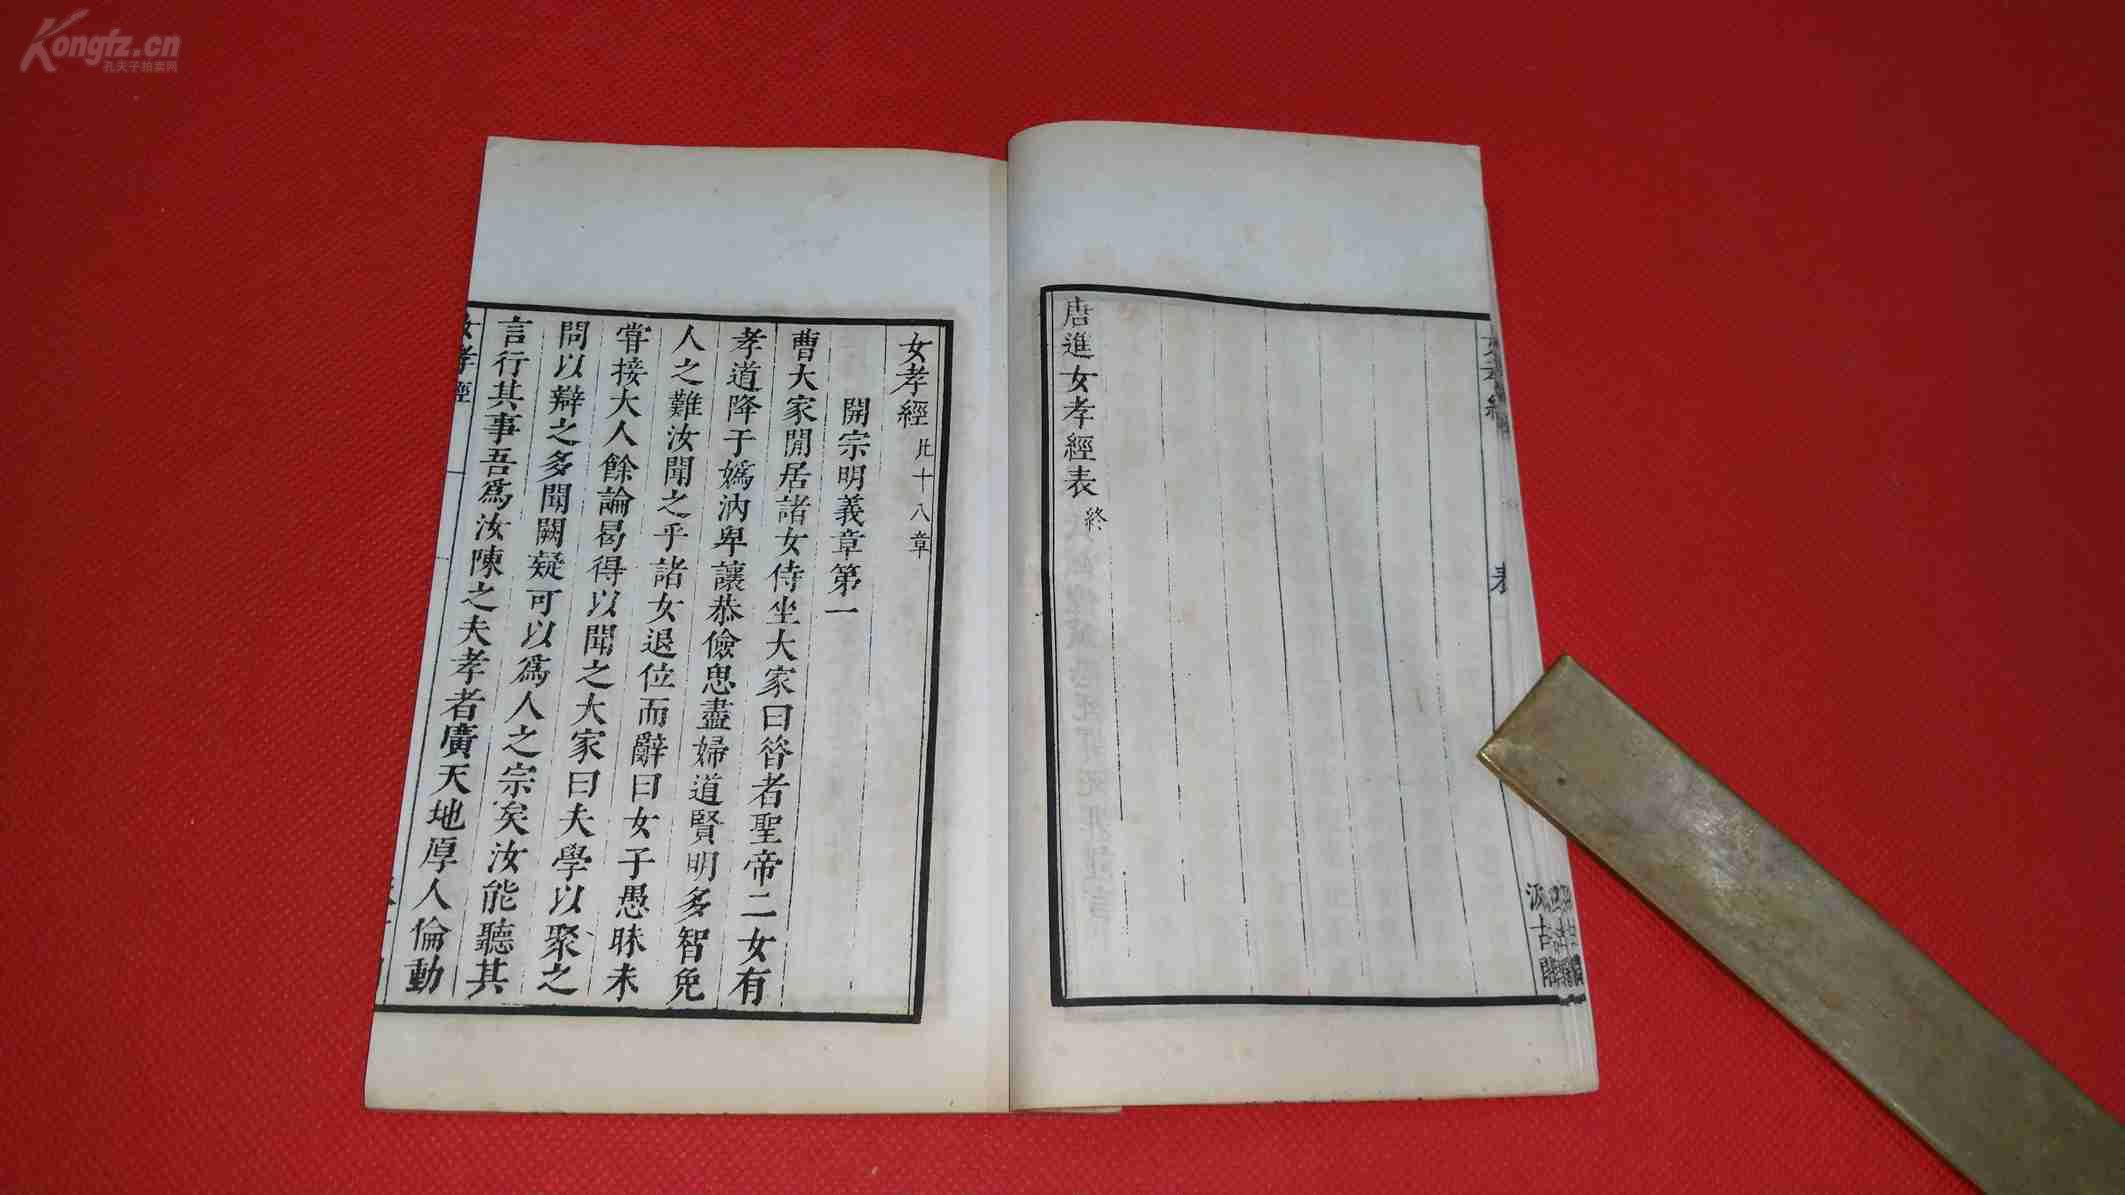 Kongfz.cn
孔夫子拍卖网
唐進女孝經表 終
汲古閣
女孝經 凡十八章
開宗明義章第一
曹大家閒居諸女侍坐大家曰昝者聖帝二女有
孝道降于嬀汭卑讓恭儉思盡婦道賢明多智免
人之難汝聞之乎諸女退位而辭曰女子愚昧未
甞接大人餘論曷得以聞之大家曰夫學以聚之
問以辯之多聞闕疑可以爲人之宗矣汝能聽其
言行其事吾爲汝陳之夫孝者廣天地厚人倫動
女孝經